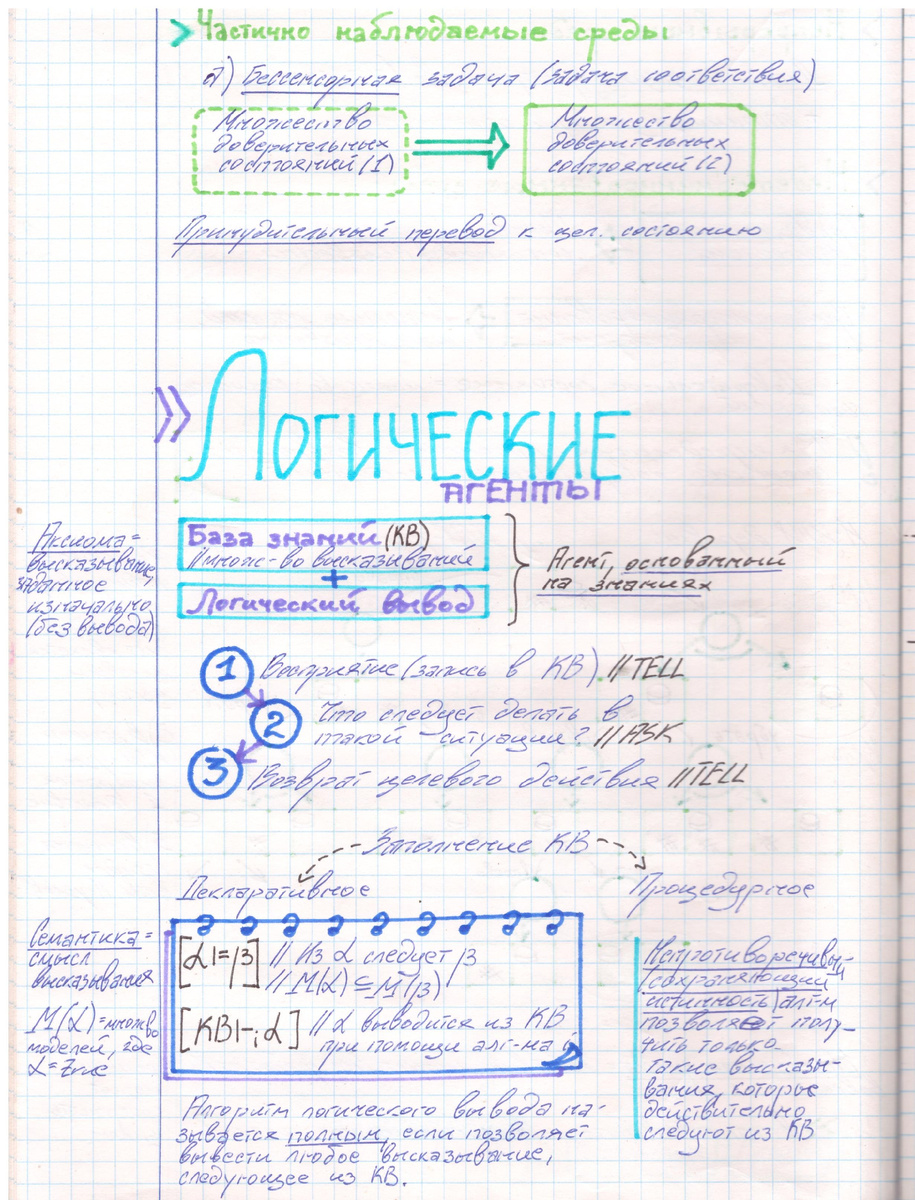 > Частично наблюдаемые среды
а) Бессенсорная задача (задача соответствия)
Множество
доверительных
состояний (1)
Множество
доверительных
состояний (2)
Принудительный перевод к цел. состоянию
» Логические
агенты
База знаний (КВ)
// множ-во высказываний
+
Логический вывод
Агент, основанный
на знаниях
Аксиома =
высказывание,
заданное
изначально
(без вывода)
1 Восприятие (запись в КВ) // TELL
2 Что следует делать в
такой ситуации? // ASK
3 Возврат целевого действия // TELL
Заполнение КВ
Декларативное
Процедурное
[α |= β] // Из α следует β
// M(α) ⊆ M(β)
[KB |-i α] // α выводится из КВ
при помощи алг-ма i
Семантика =
смысл
высказывания
M(α) = множ-во
моделей, где
α = True
Непротиворечивый
(сохраняющий
истинность) алг-м
позволяет полу-
чить только
такие высказы-
вания, которые
действительно
следуют из КВ
Алгоритм логического вывода на-
зывается полным, если позволяет
вывести любое высказывание,
следующее из КВ.